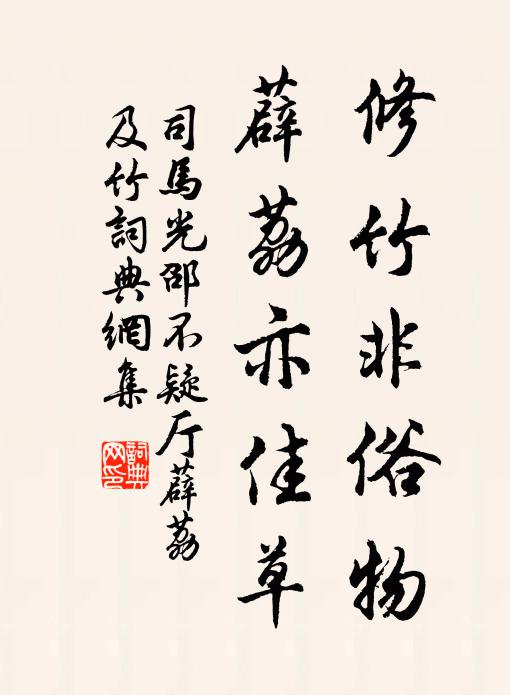 修竹非俗物
薜荔亦佳草
司馬光邵不疑厅薜荔
及竹詞典網集
詞典网印